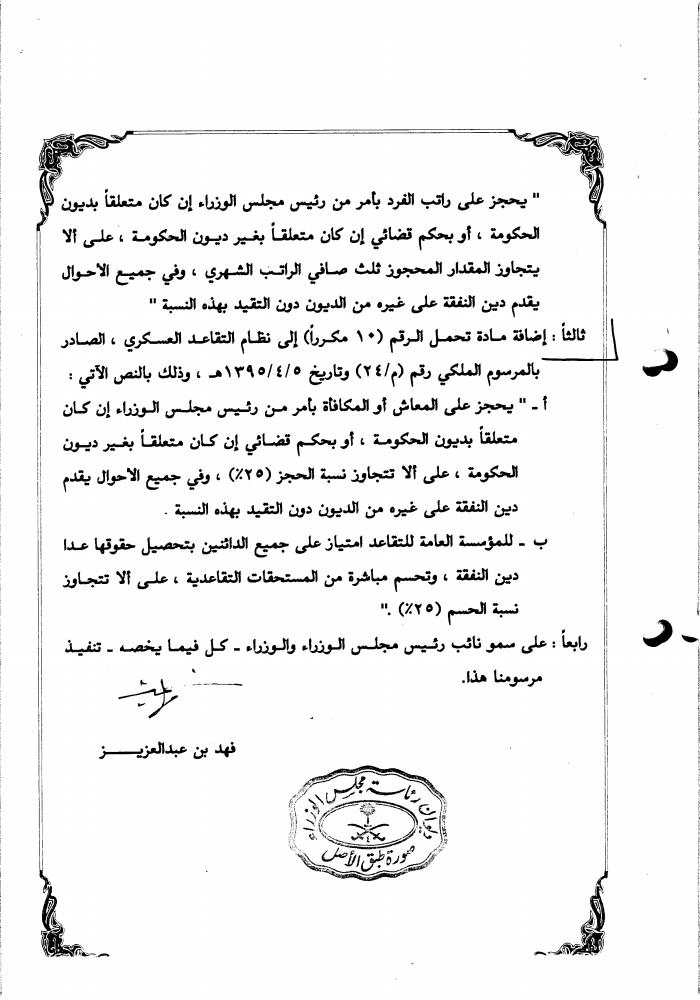 " يحجز على راتب الفرد بأمر من رئيس مجلس الوزراء إن كان متعلقاً بديون
الحكومة ، أو بحكم قضائي إن كان متعلقاً بغير ديون الحكومة ، على ألا
يتجاوز المقدار المحجوز ثلث صافي الراتب الشهري ، وفي جميع الاحوال
يقدم دين النفقة على غيره من الديون دون التقيد بهذه النسبة "
ثالثاً : إضافة مادة تحمل الرقم (١٠ مكرراً) إلى نظام التقاعد العسكري ، الصادر
بالمرسوم الملكي رقم (م/٢٤) وتاريخ ١٣٩٥/٤/٥هـ ، وذلك بالنص الآتي :
أ ـ " يحجز على المعاش أو المكافأة بأمر من رئيس مجلس الوزراء إن كان
متعلقاً بديون الحكومة ، أو بحكم قضائي إن كان متعلقاً بغير ديون
الحكومة ، على ألا تتجاوز نسبة الحجز (٢٥٪) ، وفي جميع الاحوال يقدم
دين النفقة على غيره من الديون دون التقيد بهذه النسبة .
ب ـ للمؤسسة العامة للتقاعد امتياز على جميع الدائنين بتحصيل حقوقها عدا
دين النفقة ، وتحسم مباشرة من المستحقات التقاعدية ، على ألا تتجاوز
نسبة الحسم (٢٥٪) ."
رابعاً : على سمو نائب رئيس مجلس الوزراء والوزراء ـ كل فيما يخصه ـ تنفيذ
مرسومنا هذا.
فهد بن عبدالعزيز
ديوان رئاسة مجلس الوزراء
صورة طبق الأصل